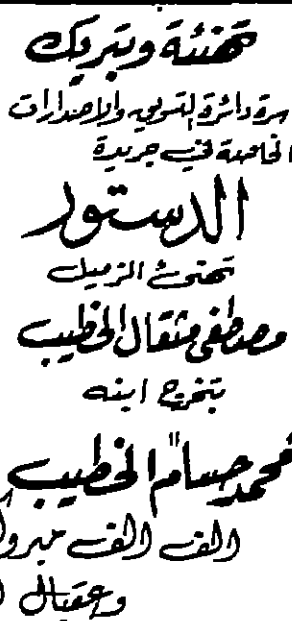 تهنئة وتبريك
سرة دائرة التسويق والاصدارات
الخاصة في جريدة
الدستور
تهنئ الزميل
مصطفى مثقال الخطيب
بتخرج ابنه
محمد حسام الخطيب
الف الف مبروك
وعقبال